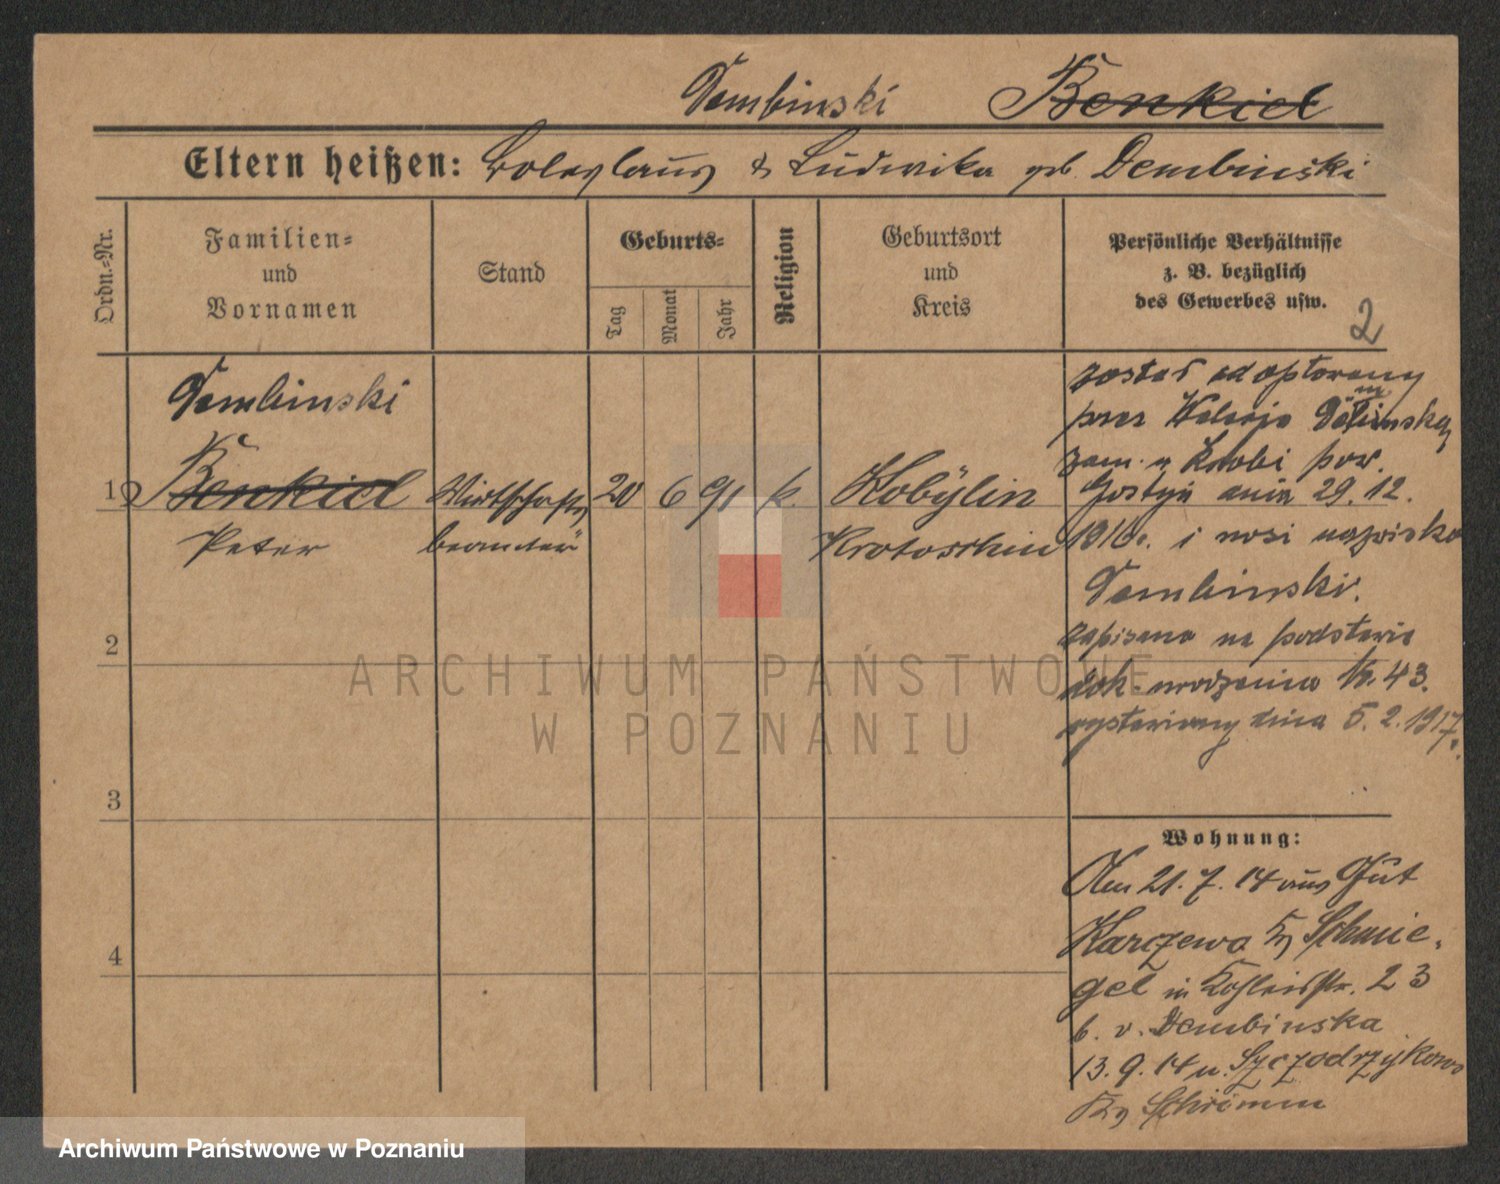 Dembinski Benkiel
Eltern heißen: Boleslaus & Ludwika geb. Dembinski
Ordn.-Nr.
Familien-
und
Vornamen
Stand
Geburts-
Tag
Monat
Jahr
Religion
Geburtsort
und
Kreis
Persönliche Verhältnisse
z. B. bezüglich
des Gewerbes usw.
2
Dembinski
1 Benkiel Wirtschafts 20 6 91 k. Kobylin
Peter beamter Krotoschin
2
3
4
został adoptowany
przez Walerję
zam. w Krobi pow.
Gostyń dnia 29.12.
1916. i nosi nazwisko
Dembinski.
zapisano na podstawie
dok. urodzenia Nr. 43.
wystawiony dnia 5.2.1917.
Wohnung:
Am 21.7.14 aus Gut
Karczewo Kr. Schmie-
gel in 23
b. v. Dembinska
13.9.14 n. Szczodrzykowo
Kr. Schrimm
ARCHIWUM PAŃSTWOWE
W POZNANIU
Archiwum Państwowe w Poznaniu